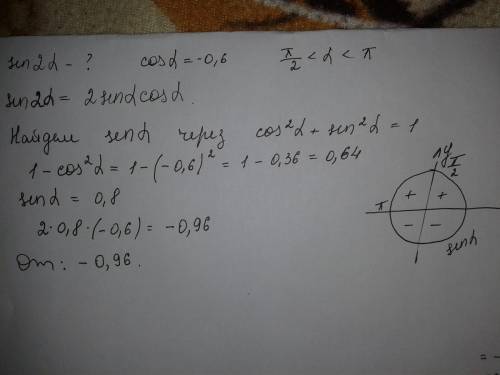 sin2α - ? cosα = -0,6 π/2 < α < π
sin2α = 2sinα cosα.
Найдем sinα через cos²α + sin²α = 1
1 - cos²α = 1 - (-0,6)² = 1 - 0,36 = 0,64
sinα = 0,8
2·0,8·(-0,6) = -0,96
От: -0,96.
y π/2
π + +
- -
sinα
= -